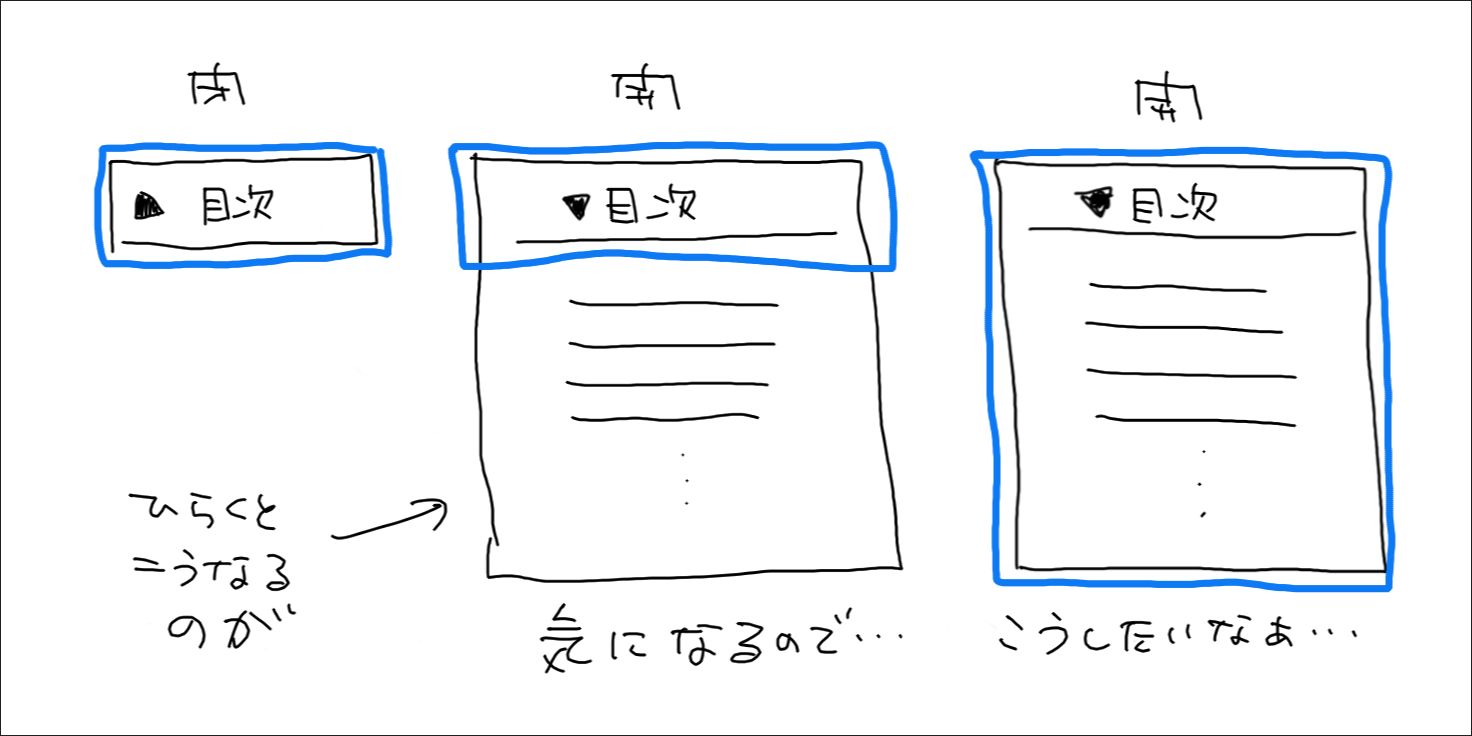 閉
開
開
▲ 目次
▼ 目次
▼ 目次
ひらくと
こうなる
のが
気になるので…
こうしたいなあ…